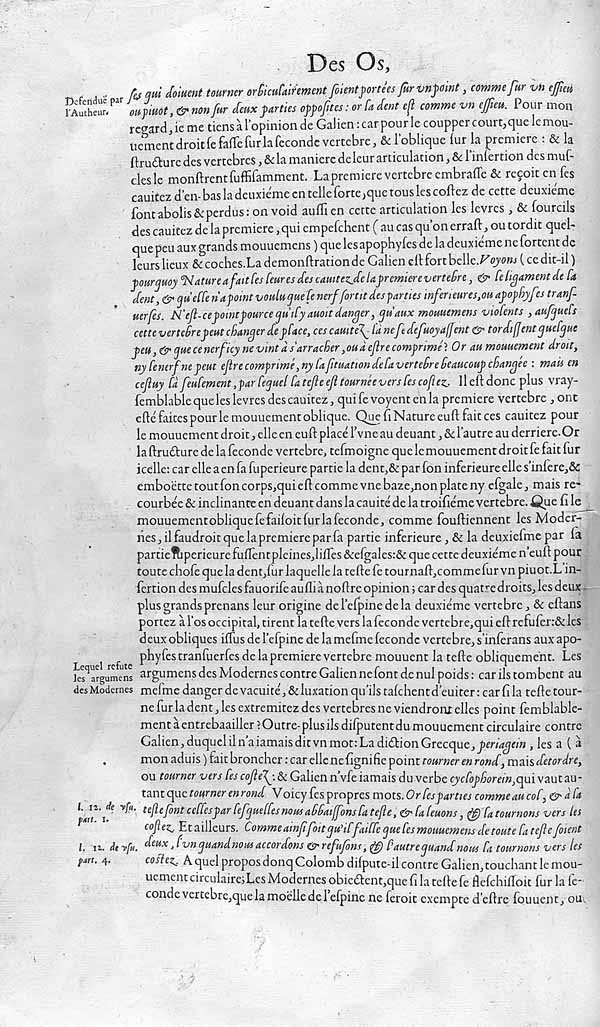 Des Os,
ſes qui doiuent tourner orbiculairement ſoient portées ſur vn point, comme ſur vn eſſieu
Defenduë par
l'Autheur.
ou piuot, & non ſur deux parties oppoſites : or la dent eſt comme vn eſſieu. Pour mon
regard, ie me tiens à l'opinion de Galien : car pour le coupper court, que le mou-
uement droit ſe faſſe ſur la ſeconde vertebre, & l'oblique ſur la premiere : & la
ſtructure des vertebres, & la maniere de leur articulation, & l'inſertion des muſ-
cles le monſtrent ſuffiſamment. La premiere vertebre embraſſe & reçoit en ſes
cauitez d'en-bas la deuxiéme en telle ſorte, que tous les coſtez de cette deuxiéme
ſont abolis & perdus : on void auſſi en cette articulation les levres, & ſourcils
des cauitez de la premiere, qui empeſchent ( au cas qu'on erraſt, ou tordit quel-
que peu aux grands mouuemens ) que les apophyſes de la deuxiéme ne ſortent de
leurs lieux & coches. La demonſtration de Galien eſt fort belle. Voyons ( ce dit-il )
pourquoy Nature a fait les leures des cauitez de la premiere vertebre, & le ligament de la
dent, & qu'elle n'a point voulu que le nerf ſortit des parties inferieures, ou apophyſes tranſ-
uerſes. N'eſt-ce point pource qu'il y auoit danger, qu'aux mouuemens violents, auſquels
cette vertebre peut changer de place, ces cauitez là ne ſe deſuoyaſſent & tordiſſent quelque
peu, & que ce nerf icy ne vint à s'arracher, ou à eſtre comprimé? Or au mouuement droit,
ny le nerf ne peut eſtre comprimé, ny la ſituation de la vertebre beaucoup changée : mais en
ceſtuy là ſeulement, par lequel la teſte eſt tournée vers les coſtez. Il eſt donc plus vray-
ſemblable que les levres des cauitez, qui ſe voyent en la premiere vertebre, ont
eſté faites pour le mouuement oblique. Que ſi Nature euſt fait ces cauitez pour
le mouuement droit, elle en euſt placé l'vne au deuant, & l'autre au derriere. Or
la ſtructure de la ſeconde vertebre, teſmoigne que le mouuement droit ſe fait ſur
icelle : car elle a en ſa ſuperieure partie la dent, & par ſon inferieure elle s'inſere, &
emboëtte tout ſon corps, qui eſt comme vne baze, non plate ny eſgale, mais re-
courbée & inclinante en deuant dans la cauité de la troiſiéme vertebre. Que ſi le
mouuement oblique ſe faiſoit ſur la ſeconde, comme ſouſtiennent les Moder-
nes, il faudroit que la premiere par ſa partie inferieure, & la deuxieſme par ſa
partie ſuperieure fuſſent pleines, liſſes & eſgales : & que cette deuxiéme n'euſt pour
toute choſe que la dent, ſur laquelle la teſte ſe tournaſt, comme ſur vn piuot. L'in-
ſertion des muſcles fauoriſe auſſi à noſtre opinion ; car des quatre droits, les deux
plus grands prenans leur origine de l'eſpine de la deuxiéme vertebre, & eſtans
portez à l'os occipital, tirent la teſte vers la ſeconde vertebre, qui eſt refuſer : & les
deux obliques iſſus de l'eſpine de la meſme ſeconde vertebre, s'inſerans aux apo-
phyſes tranſuerſes de la premiere vertebre mouuent la teſte obliquement. Les
Lequel refute
les argumens
des Modernes
argumens des Modernes contre Galien ne ſont de nul poids : car ils tombent au
meſme danger de vacuité, & luxation qu'ils taſchent d'euiter : car ſi la teſte tour-
ne ſur la dent, les extremitez des vertebres ne viendront elles point ſemblable-
ment à entrebaailler ? Outre-plus ils diſputent du mouuement circulaire contre
Galien, duquel il n'a iamais dit vn mot : La diction Grecque, periagein, les a ( à
mon aduis ) fait broncher : car elle ne ſignifie point tourner en rond, mais detordre,
ou tourner vers les coſtez : & Galien n'vſe iamais du verbe cyclophorein, qui vaut au-
tant que tourner en rond Voicy ſes propres mots. Or les parties comme au col, & à la
l. 12. de vſu.
part. 1.
teſte ſont celles par leſquelles nous abbaiſſons la teſte, & la leuons, & la tournons vers les
coſtez. Et ailleurs. Comme ainſi ſoit qu'il faille que les mouuemens de toute la teſte ſoient
l. 12. de vſu.
part. 4.
deux, l'vn quand nous accordons & refuſons, & l'autre quand nous la tournons vers les
costez. A quel propos donq Colomb diſpute-il contre Galien, touchant le mou-
uement circulaire ; Les Modernes obiectent, que ſi la teſte ſe fleſchiſſoit ſur la ſe-
conde vertebre, que la moëlle de l'eſpine ne ſeroit exempte d'eſtre ſouuent, ou